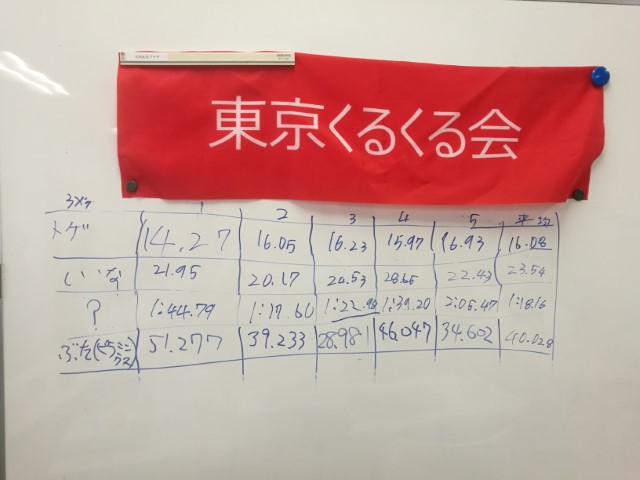 東京くるくる会
3x3 1 2 3 4 5 平均
トゲ 14.27 16.05 16.23 15.97 16.93 16.08
いいな 21.95 20.17 20.53 28.65 22.43 23.54
? 1:44.79 1:17.60 1:22.98 1:39.20 2:05.47 1:18.16
ぶた 51.277 39.233 28.981 46.047 34.602 40.028